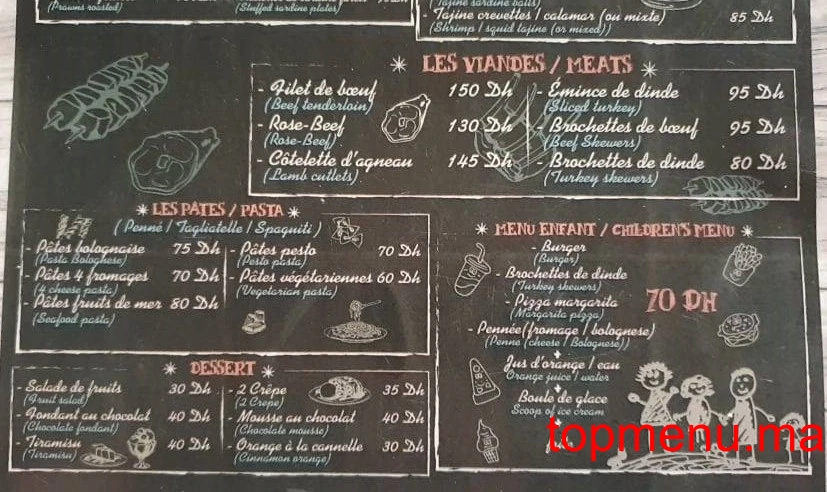 (Prawns roasted)
(Stuffed sardine plates)
(Tajine sardine balls)
- Tajine crevettes / calamar (ou mixte) 85 Dh
(Shrimp / squid tajine (or mixed))
LES VIANDES / MEATS
- Filet de bœuf 150 Dh
(Beef tenderloin)
- Rose-Beef 130 Dh
(Rose-Beef)
- Côtelette d'agneau 145 Dh
(Lamb cutlets)
- Émince de dinde 95 Dh
(Sliced turkey)
- Brochettes de bœuf 95 Dh
(Beef Skewers)
- Brochettes de dinde 80 Dh
(Turkey skewers)
LES PÂTES / PASTA
(Penné / Tagliatelle / Spaquiti)
- Pâtes bolognaise 75 Dh
(Pasta Bolognese)
- Pâtes 4 fromages 70 Dh
(4 cheese pasta)
- Pâtes fruits de mer 80 Dh
(Seafood pasta)
- Pâtes pesto 70 Dh
(Pesto pasta)
- Pâtes végétariennes 60 Dh
(Vegetarian pasta)
MENU ENFANT / CHILDREN'S MENU
- Burger
(Burger)
- Brochettes de dinde
(Turkey skewers)
- Pizza margarita
(Margarita pizza)
- Pennée(fromage / bolognese)
(Penne (cheese / Bolognese))
+
Jus d'orange / eau
Orange juice / water
+
Boule de glace
Scoop of ice cream
70 DH
DESSERT
- Salade de fruits 30 Dh
(Fruit salad)
- Fondant au chocolat 40 Dh
(Chocolate fondant)
- Tiramisu 40 Dh
(Tiramisu)
- 2 Crêpe 35 Dh
(2 Crepe)
- Mousse au chocolat 40 Dh
(Chocolate mousse)
- Orange à la cannelle 30 Dh
(Cinnamon orange)
topmenu.ma